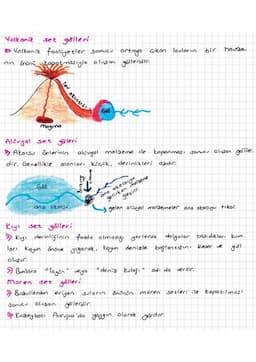 Volkanik set gölleri
Volkanik faaliyetler sonucu ortaya çıkan lavların bir havza-
nın önünü kapatmasıyla oluşan göllerdir.
Lav akıntısı
Göl
magma
Alüvyal set gölleri
Akarsu önlerinin alüvyal malzeme ile kapanması sonucu oluşan göller-
dir. Genellikle alanları küçük, derinlikleri azdır.
Göl
ana akarsu
gelen alüvyal malzemeler ana akarsuyu tıkar.
Kıyı set gölleri
Kıyı derinliğinin fazla olmadığı yerlerde dalgalar taşıdıkları kum-
ları koyun önüne yığarak, koyun denizle bağlantısını keser ve göl
oluşur.
Bunlara "lagün" veya "deniz kulağı" adı da verilir.
Moren set gölleri
Buzullardan eriyen suların önünün moren setleri ile kapatılması
sonucu oluşan göllerdir.
Kuzeybatı Avrupa'da yaygın olarak görülür.